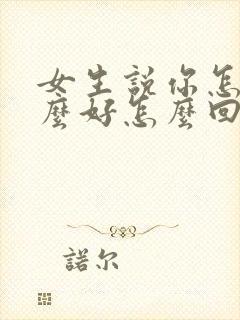 女生説你怎
麼好怎麼回
諾尔